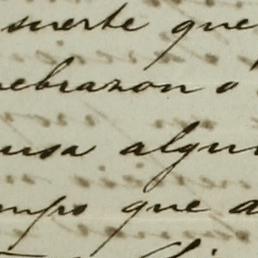 suerte que
ebrazon o
usa algu
mpo que a